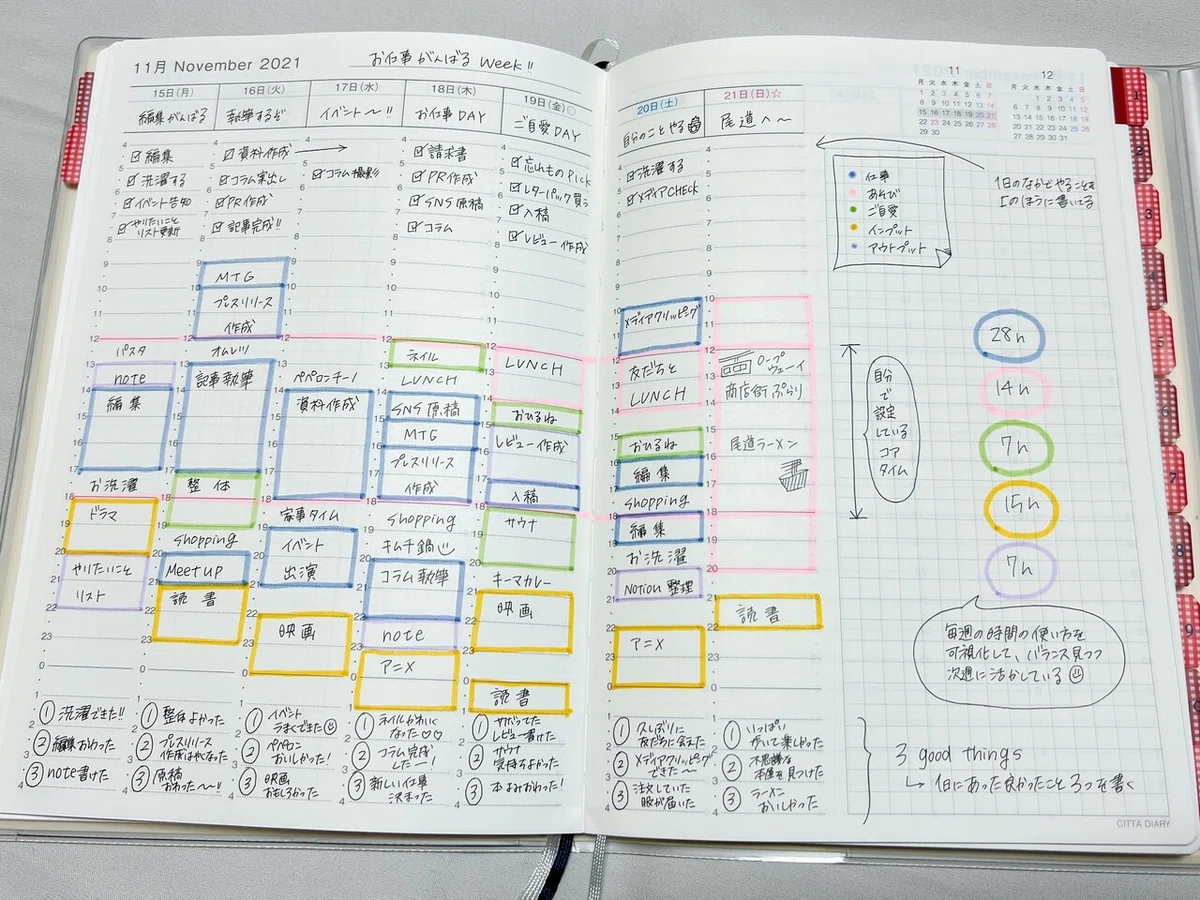 11月 November 2021
お仕事がんばるWeek!!
15日(月)
編集がんばる
☑編集
☑洗濯する
☑イベント告知
☑やりたいこと
リスト更新
パスタ
note
編集
お洗濯
ドラマ
やりたいこと
リスト
①洗濯できた!!
②編集おわった
③note書けた
16日(火)
執筆するぞ
☑資料作成
☑コラム実出し
☑PR作成
☑記事完成!!
MTG
プレスリリース
作成
オムレツ
記事執筆
整体
shopping
Meetup
読書
①整体よかった
②プレスリリース
作成はやくなった
③原稿
おわった〜!!
17日(水)
イベント〜!!
☑コラム撮影
ペペロンチーノ
資料作成
家事タイム
イベント
出演
映画
①イベント
うまくできた
②ペペロン
おいしかった!
③映画
おもしろかった
18日(木)
お仕事DAY
☑請求書
☑PR作成
☑SNS原稿
☑コラム
ネイル
LUNCH
SNS原稿
MTG
プレスリリース
作成
shopping
キムチ鍋
コラム執筆
note
アニメ
①ネイルかわいく
なった♡♡
②コラム完成
したー!
③新しい仕事
決まった
19日(金)
ご自愛DAY
☑忘れものPick
☑レターパック買う
☑入稿
☑レビュー作成
LUNCH
おひるね
レビュー作成
入稿
サウナ
キーマカレー
映画
読書
①サボってた
レビュー書けた
②サウナ
気持ちよかった
③本よみおわった!
20日(土)
自分のことやる
☑洗濯する
☑メディアCHECK
メディアクリッピング
友だちと
LUNCH
おひるね
編集
shopping
編集
お洗濯
Notion整理
アニメ
①久しぶりに
友だちに会えた
②メディアクリッピング
できた〜
③注文していた
服が届いた
21日(日)☆
尾道へ〜
ロープ
ウェーイ
商店街ぷらり
尾道ラーメン
読書
①いっぱい
歩いて楽しかった
②不思議な
本屋を見つけた
③ラーメン
おいしかった
11
月 火 水 木 金 土 日
1 2 3 4 5 6 7
8 9 10 11 12 13 14
15 16 17 18 19 20 21
22 23 24 25 26 27 28
29 30
12
月 火 水 木 金 土 日
1 2 3 4 5
6 7 8 9 10 11 12
13 14 15 16 17 18 19
20 21 22 23 24 25 26
27 28 29 30 31
仕事
あそび
ご自愛
インプット
アウトプット
1日のなかでやることを
上のほうに書いてる
自分
で
設定
している
コア
タイム
28h
14h
7h
15h
7h
毎週の時間の使い方を
可視化して、バランス見つつ
次週に活かしている
3 good things
↳1日にあった良かったこと3つを書く
CITTA DIARY
1
2
3
4
5
6
7
8
9